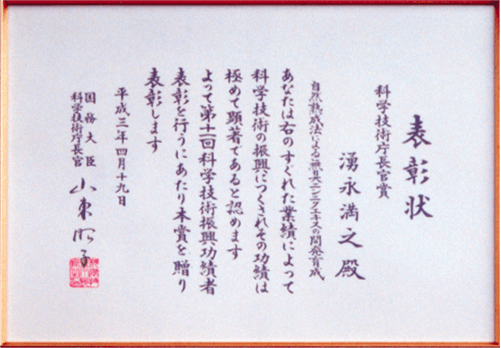 表彰状
科学技術庁長官賞
湧永満之殿
自然熟成法による無臭ニンニクエキスの開発育成
あなたは右のすぐれた業績によって
科学技術の振興につくされその功績は
極めて顕著であると認めます
よって第十一回科学技術振興功績者
表彰を行うにあたり本賞を贈り
表彰します
平成三年四月十九日
国務大臣
科学技術庁長官
山東昭子